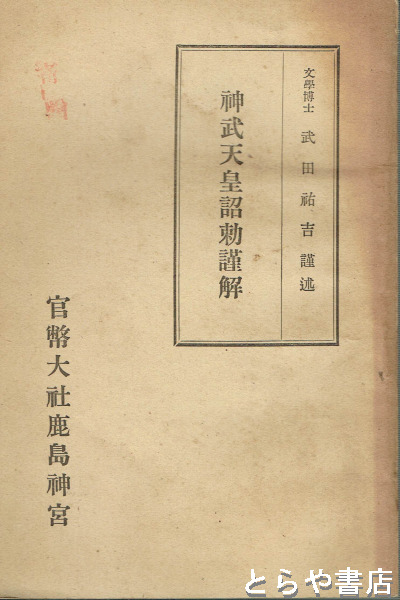 文學博士 武田祐吉謹述
神武天皇詔勅謹解
官幣大社鹿島神宮
とらや書店